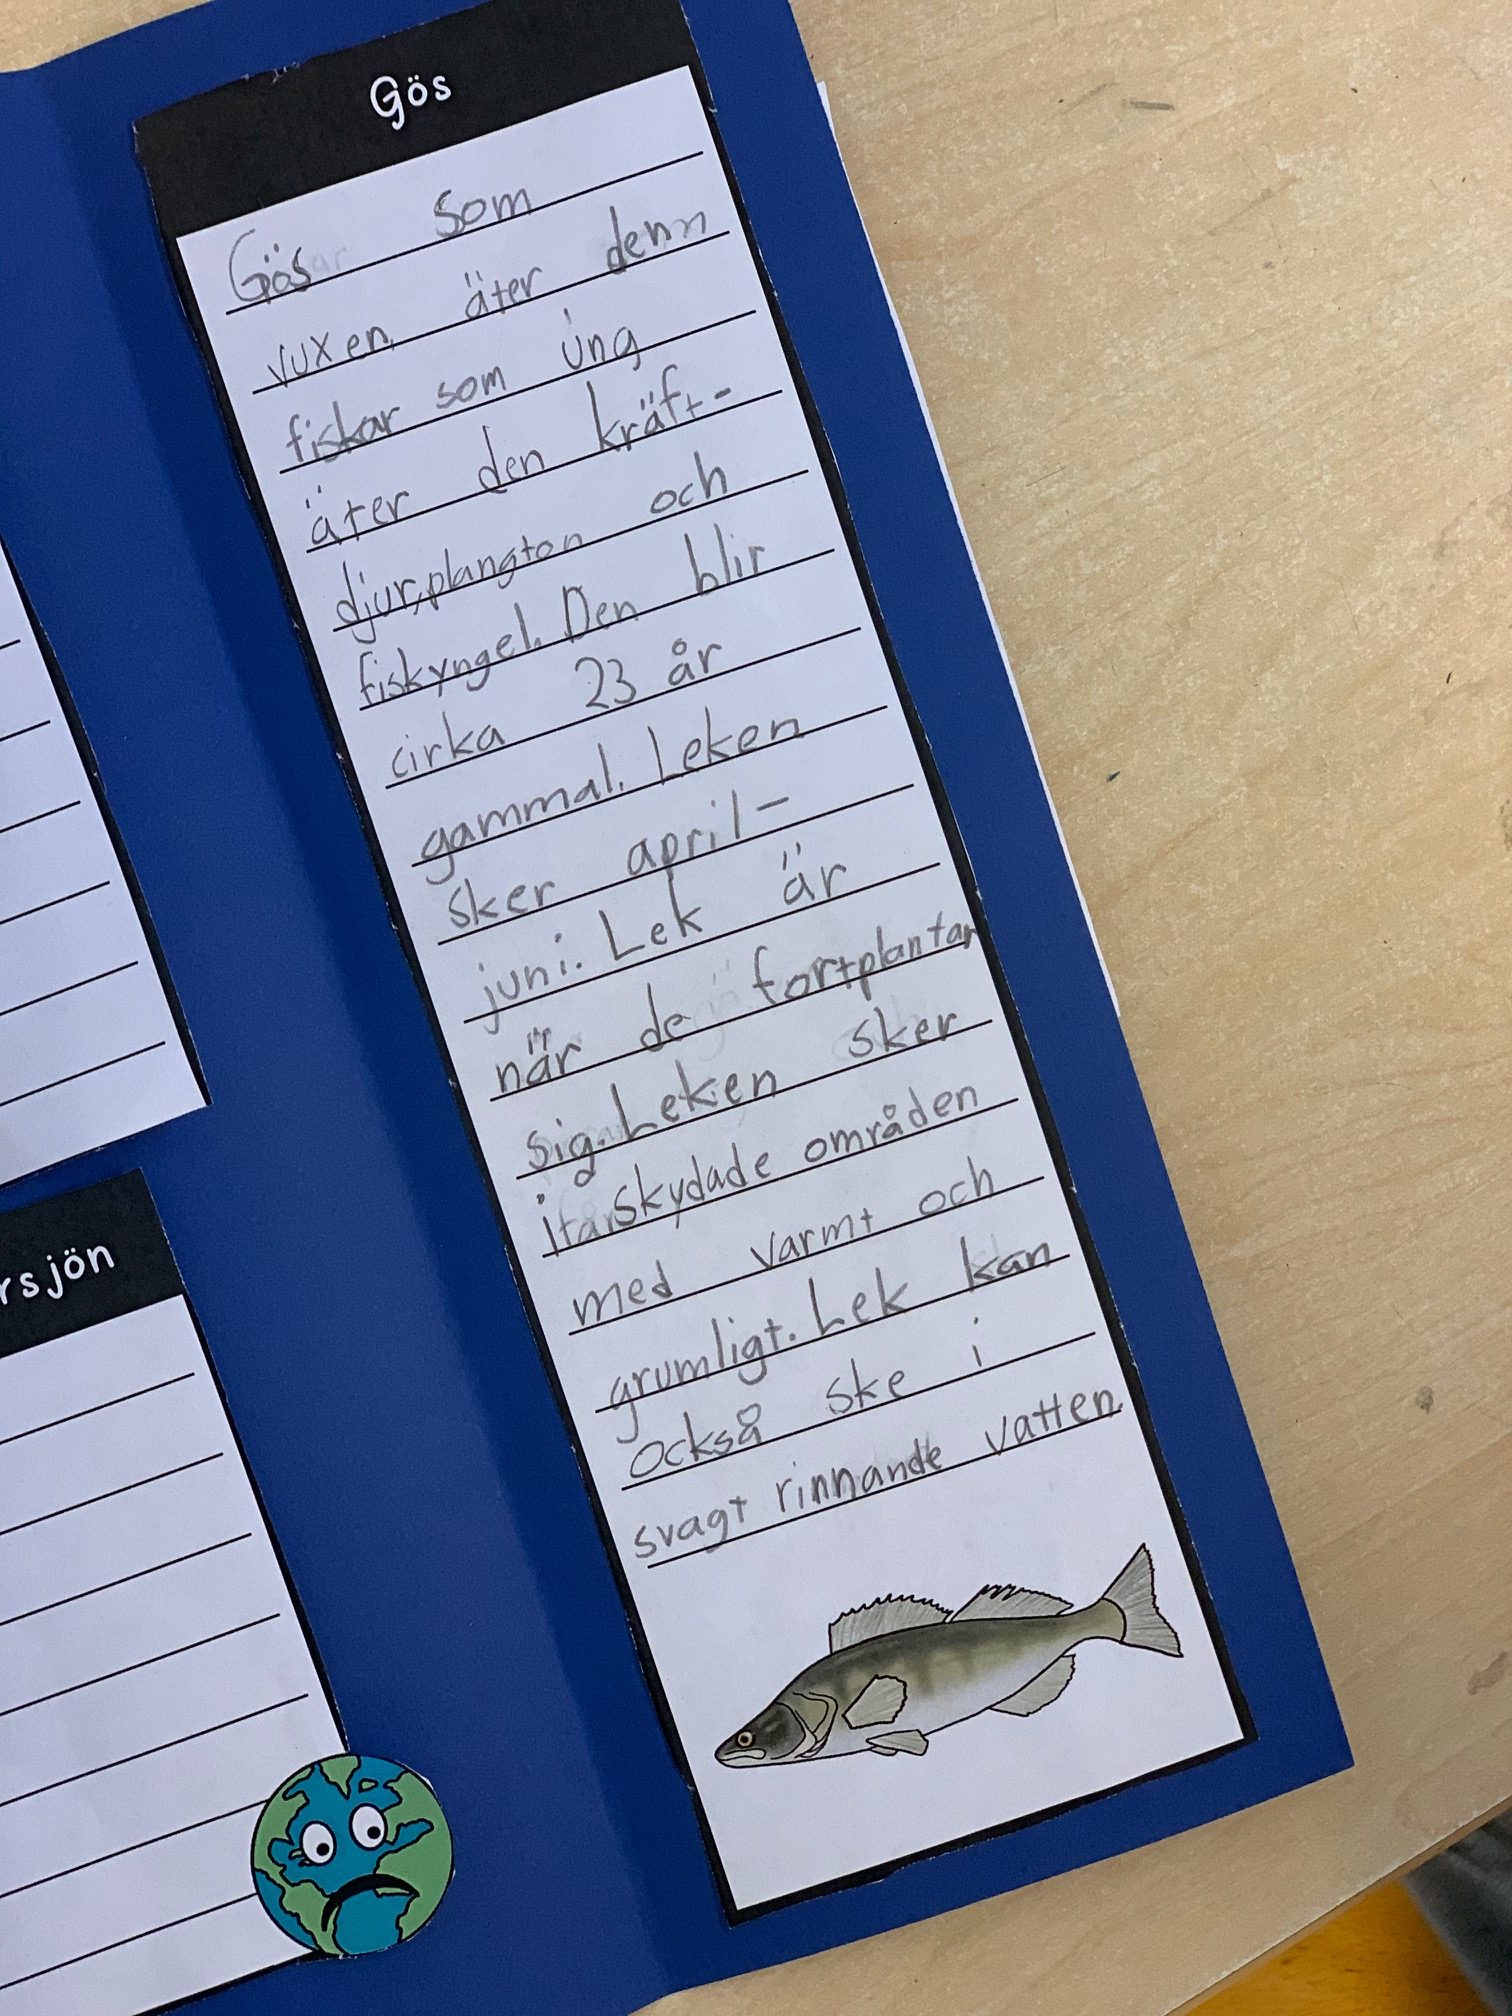 Gös
Gös som
vuxen äter denn
fiskar som ung
äter den kräft-
djur, plangton och
fiskyngel. Den blir
cirka 23 år
gammal. Leken
sker april-
juni. Lek är
när de fortplantar
sig. Leken sker
i skydade områden
med varmt och
grumligt. Lek kan
också ske i
svagt rinnande vatten
rsjön